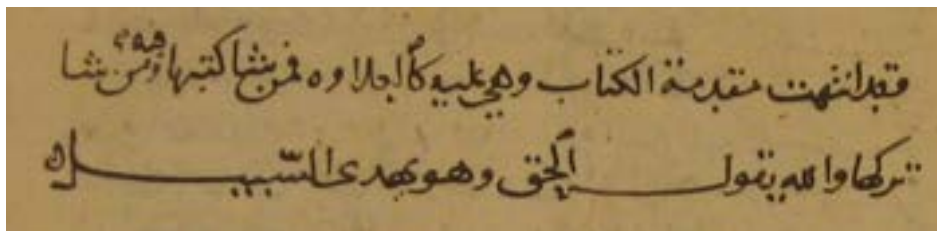 فقد انتهت مقدمة الكتاب وهي عليه كالعلاوه فمن شا كتبها فيه ومن شا
تركها والله يقول الحق وهو يهدى السبيل